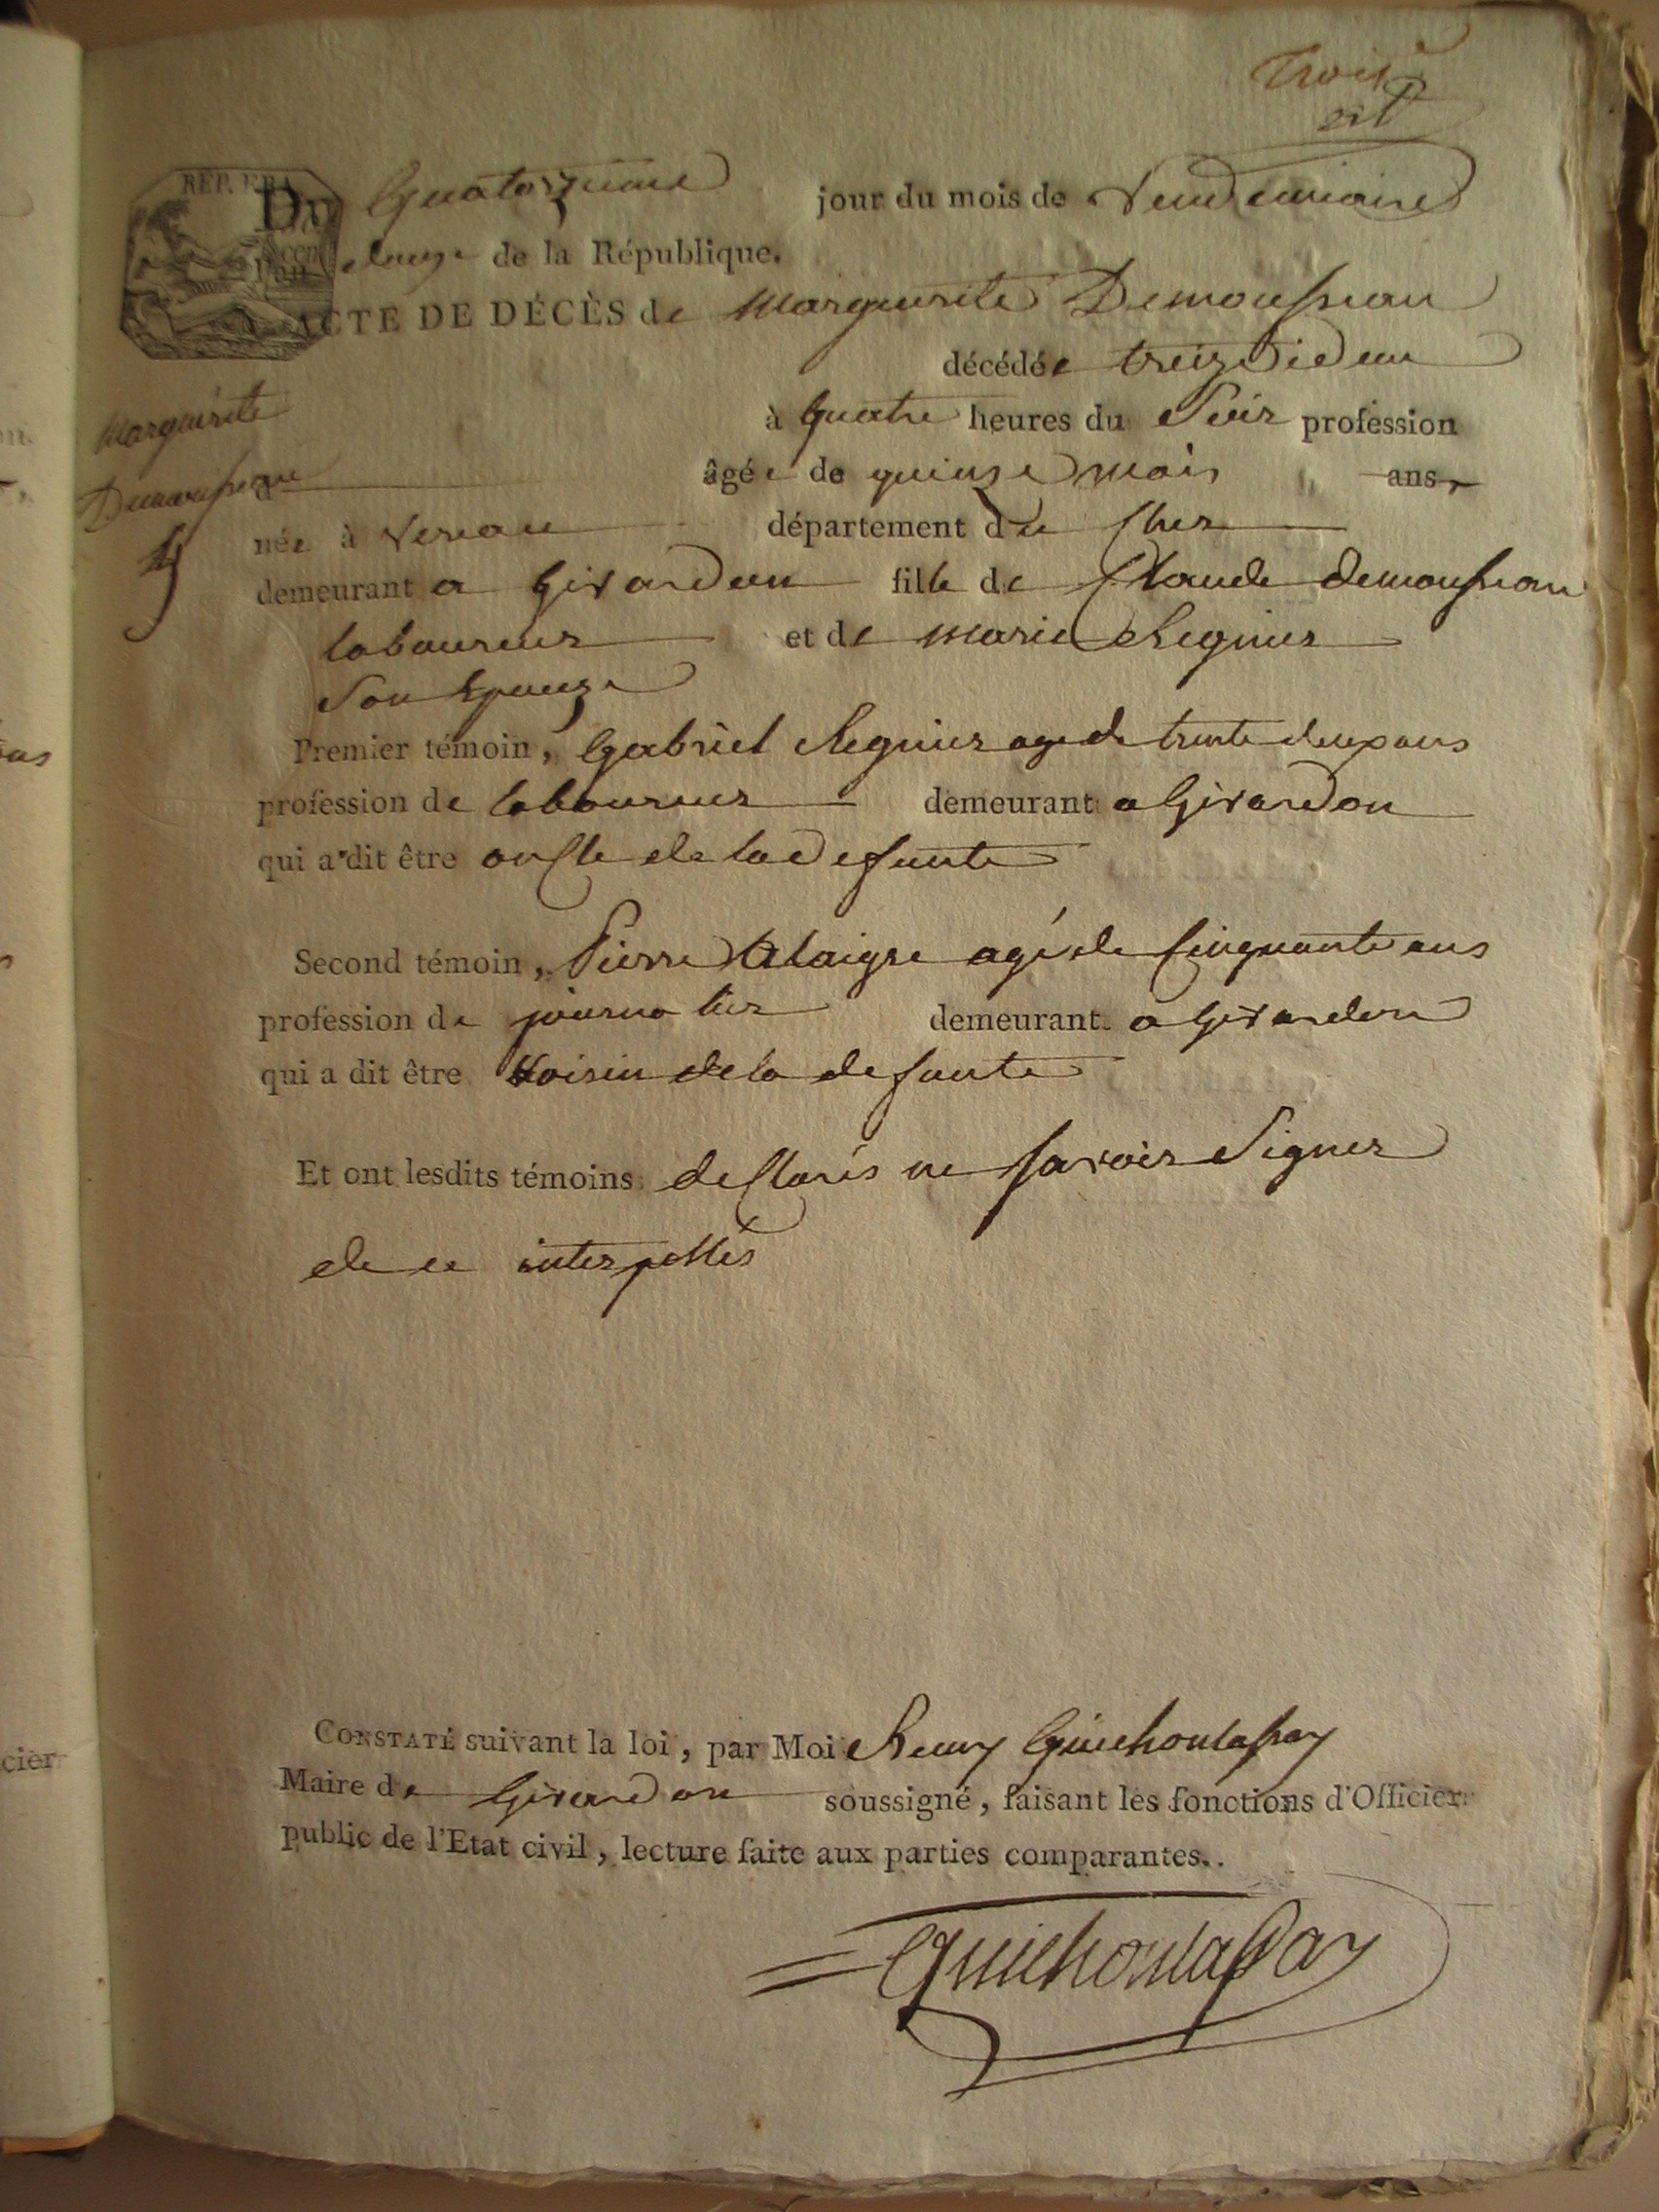 trois
REP. FRA
Du Quatorzieme jour du mois de Vendemiaire
l'an douze de la République.
ACTE DE DÉCÈS de Marguerite Demousseau
décédée treize dieu
à quatre heures du Soir profession
âgée de quinze mois ans,
Marguerite
Demousseau
née à Vereau département du Cher
demeurant a Givardon fille de Claude demousseau
laboureur et de marie Regnier
Son Epouze
Premier témoin, Gabriel Regnier agé de trente deux ans
profession de laboureur demeurant a Givardon
qui a dit être oncle de la defunte
Second témoin, Pierre Alaigre agé de Cinquante ans
profession de journalier demeurant a Givardon
qui a dit être Voisin de la defunte
Et ont lesdits témoins declarés ne savoir Signer
de ce interpellés
CONSTATÉ suivant la loi, par Moi Remy
Maire de Givardon soussigné, faisant les fonctions d'Officier
public de l'Etat civil, lecture faite aux parties comparantes.